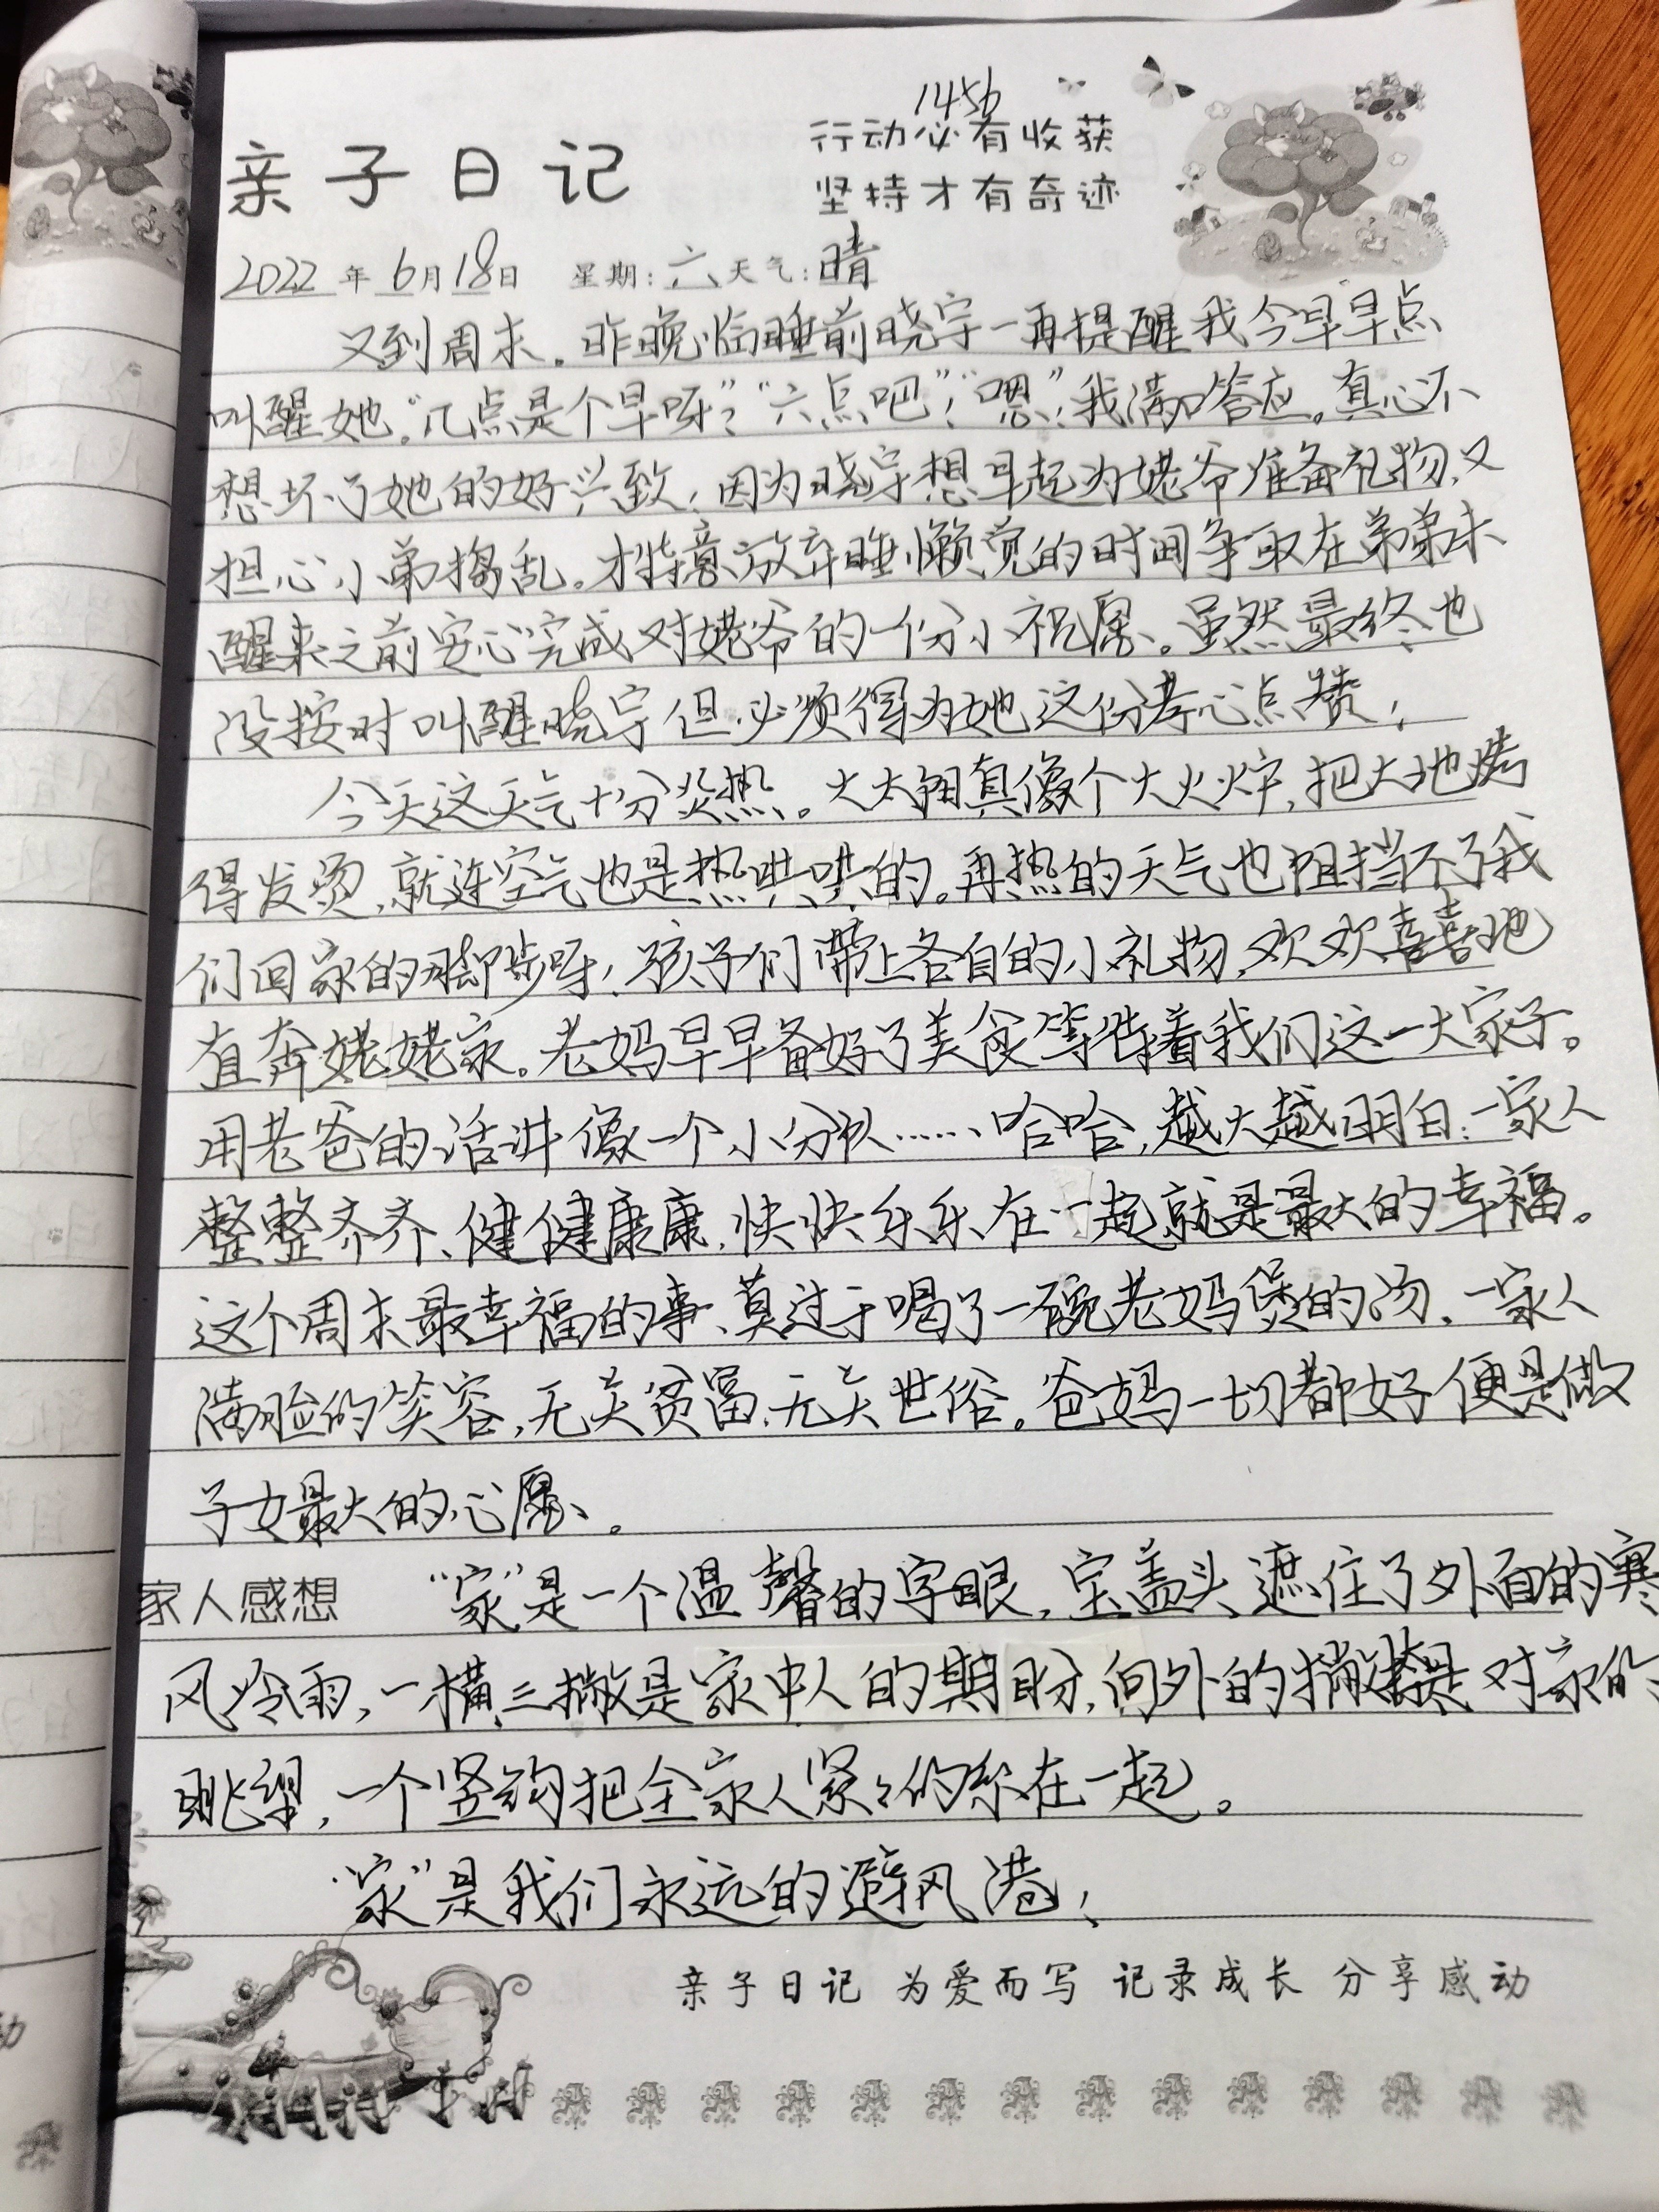 1456
行动必有收获
亲子日记
坚持才有奇迹
2022年6月18日 星期:六天气:晴
又到周末。昨晚临睡前晓宇一再提醒我今早早点
叫醒她。“几点是个早呀?”“六点吧!”“嗯!”我满口答应。真心不
想坏了她的好兴致,因为晓宇想早起为姥爷准备礼物,又
担心小弟捣乱。才特意放弃睡懒觉的时间争取在弟弟未
醒来之前安心完成对姥爷的一份小祝愿。虽然最终也
没按时叫醒晓宇但必须得为她这份孝心点赞!
今天这天气十分炎热。大太阳真像个大火炉,把大地烤
得发烫,就连空气也是热烘烘的。再热的天气也阻挡不了我
们回家的脚步呀!孩子们带上各自的小礼物,欢欢喜喜地
直奔姥姥家。老妈早早备好了美食等待着我们这一大家子。
用老爸的话讲像一个小分队……哈哈,越大越明白:一家人
整整齐齐、健健康康,快快乐乐在一起就是最大的幸福。
这个周末最幸福的事、莫过于喝了一碗老妈煲的汤,一家人
满脸的笑容,无关贫富,无关世俗。爸妈一切都好便是做
子女最大的心愿。
家人感想 “家”是一个温馨的字眼,宝盖头遮住了外面的寒
风冷雨,一横三撇是家中人的期盼,向外的撇捺是对家的
眺望,一个竖钩把全家人紧紧的系在一起。
“家”是我们永远的避风港!
亲子日记 为爱而写 记录成长 分享感动
动